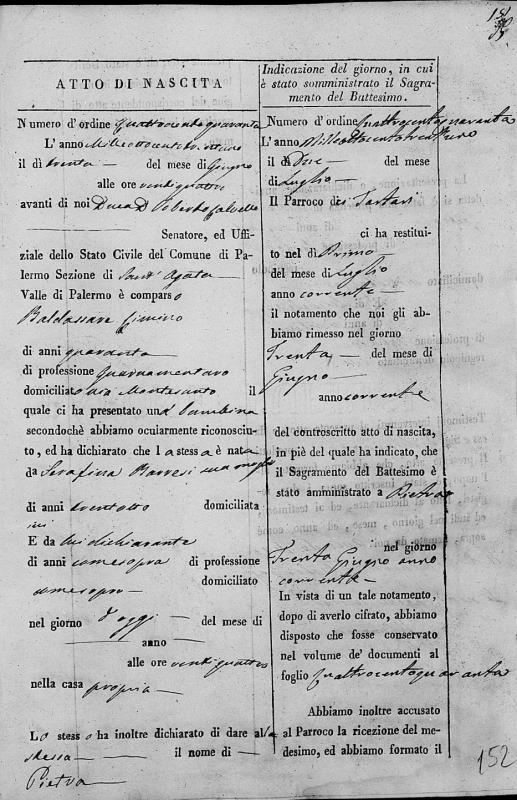 ATTO DI NASCITA
Numero d'ordine Quattrocentoquaranta
L'anno Milleottocentotrentuno
il dì trenta — del mese di Giugno
alle ore ventiquattro
avanti di noi Duca D. Roberto
Senatore, ed Uffi-
ziale dello Stato Civile del Comune di Pa-
lermo Sezione di Sant'Agata —
Valle di Palermo è comparso
Baldassare Cimino
di anni quaranta
di professione
domiciliato via Montesanto il
quale ci ha presentato una bambina
secondochè abbiamo ocularmente riconosciu-
to, ed ha dichiarato che la stessa è nata
da Serafina Barresi sua moglie
di anni trentotto domiciliata
ivi
E da lui dichiarante
di anni come sopra di professione
domiciliato
come sopra —
nel giorno d'oggi — del mese di
— anno —
alle ore ventiquattro
nella casa propria —
Lo stesso ha inoltre dichiarato di dare alla
stessa — il nome di —
Pietra —
Indicazione del giorno, in cui
è stato somministrato il Sagra-
mento del Battesimo.
Numero d'ordine quattrocentoquaranta
L'anno Milleottocentotrentuno
il dì Due — del mese
di Luglio —
Il Parroco dei Tartari
ci ha restitui-
to nel dì Primo —
del mese di Luglio
anno corrente —
il notamento che noi gli ab-
biamo rimesso nel giorno
Trenta — del mese di
Giugno —
anno corrente
del controscritto atto di nascita,
in piè del quale ha indicato, che
il Sagramento del Battesimo è
stato amministrato a Pietra
nel giorno
Trenta Giugno anno
corrente —
In vista di un tale notamento,
dopo di averlo cifrato, abbiamo
disposto che fosse conservato
nel volume de' documenti al
foglio quattrocentoquaranta
Abbiamo inoltre accusato
al Parroco la ricezione del me-
desimo, ed abbiamo formato il
152